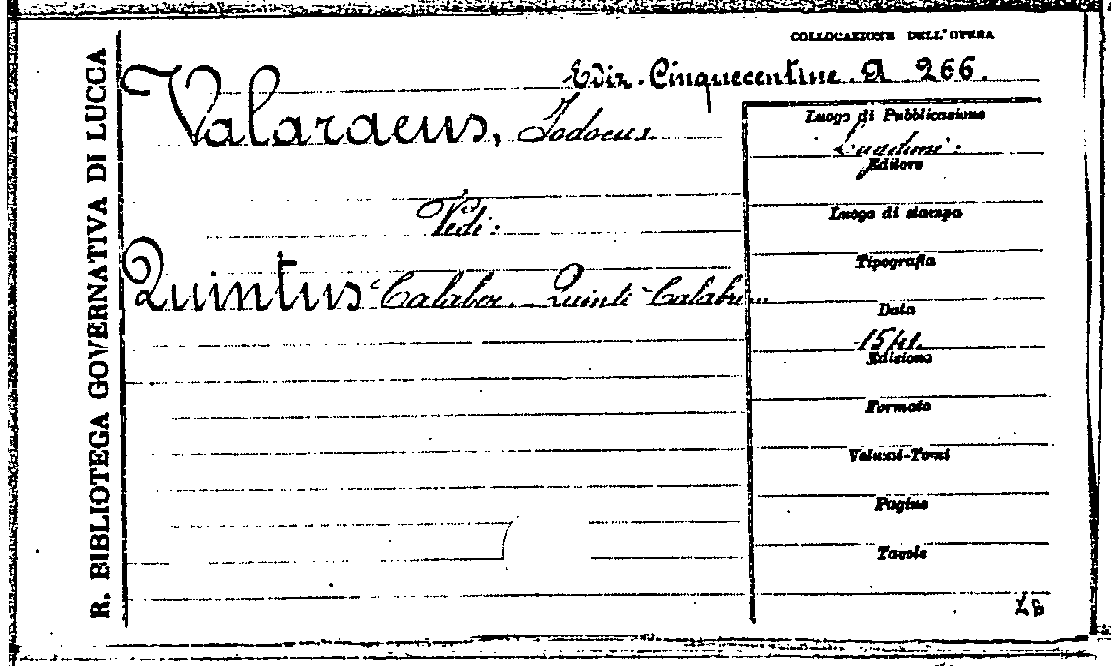 COLLOCAZIONE DELL'OPERA
Ediz. Cinquecentine. A 266.
R. BIBLIOTEGA GOVERNATIVA DI LUCCA
Valaraeus, Jodocus
Vedi:
Quintus Calaber. Quinti Calabri...
Luogo di Pubblicazione
Lugduni:
Editore
Luogo di stampa
Tipografia
Data
1541.
Edizione
Formato
Volumi-Tomi
Pagine
Tavole